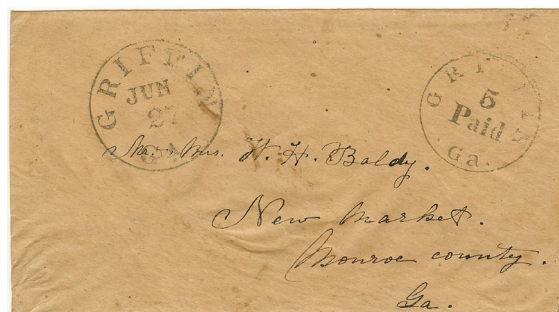 GRIFFIN
JUN
27
GA.
GRIFFIN
5
Paid
Ga.
Mrs. W. H. Baldy.
New Market.
Monroe county.
Ga.